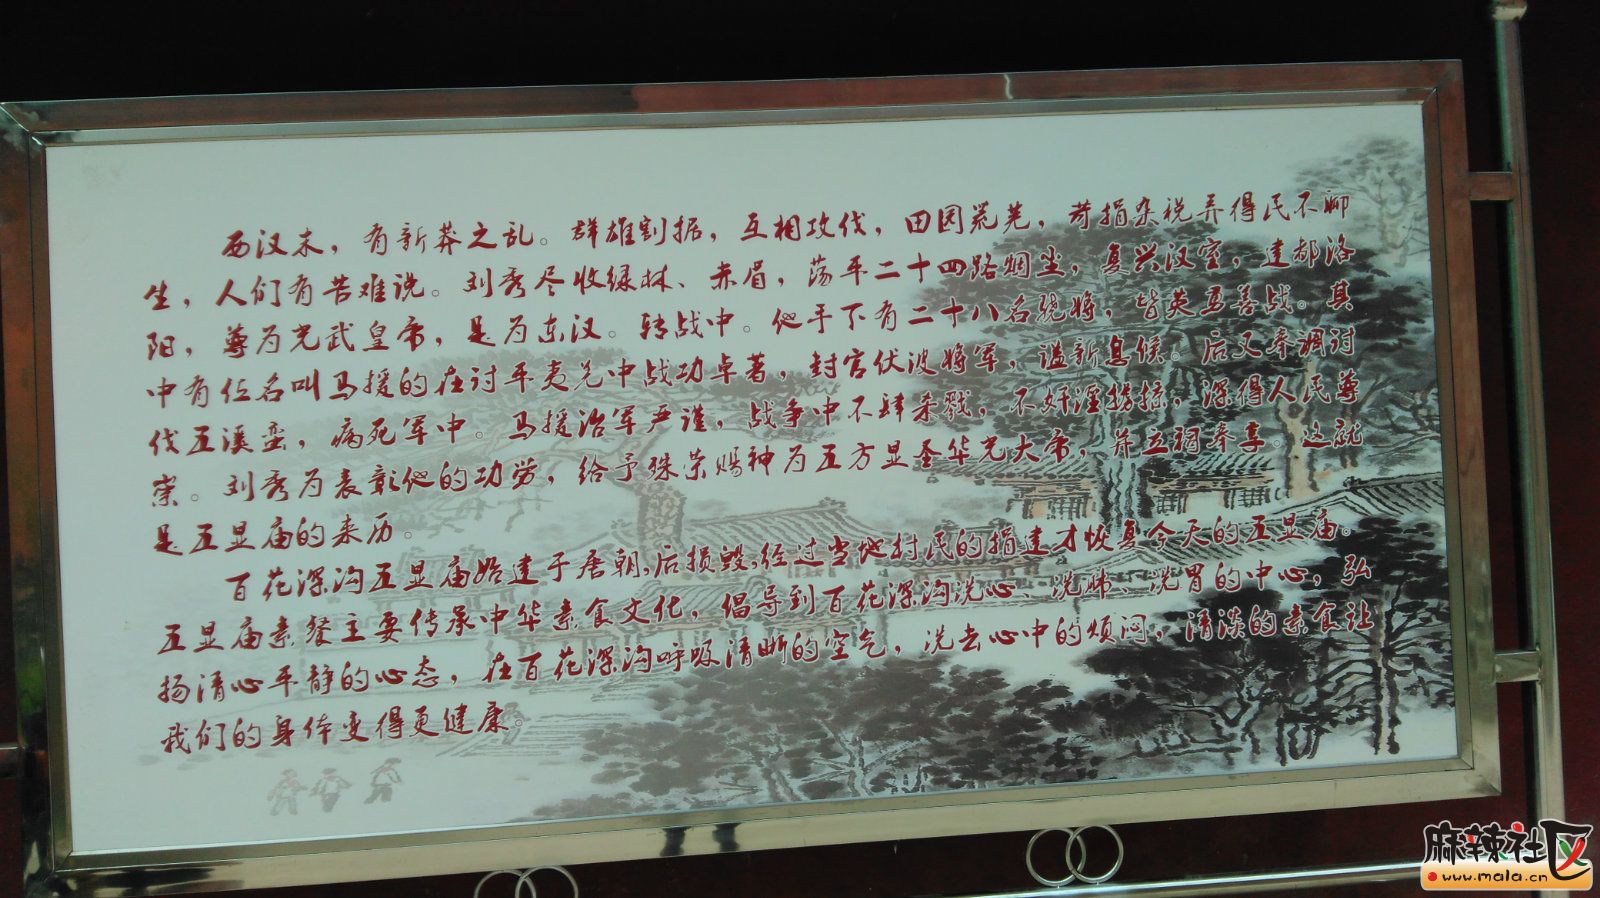 西汉末，有新莽之乱。群雄割据，互相攻伐，田园荒芜，苛捐杂税弄得民不聊
生，人们有苦难说。刘秀尽收绿林、赤眉，荡平二十四路烟尘，复兴汉室，建都洛
阳，尊为光武皇帝，是为东汉。转战中。他手下有二十八名骁将，皆英勇善战。其
中有位名叫马援的在讨平夷羌中战功卓著，封官伏波将军，谥新息侯。后又奉调讨
伐五溪蛮，病死军中。马援治军严谨，战争中不肆杀戮，不奸淫掳掠，深得人民尊
崇。刘秀为表彰他的功劳，给予殊荣赐神为五方显圣华光大帝，并立祠奉享。这就
是五显庙的来历。
百花深沟五显庙始建于唐朝，后损毁，经过当地村民的捐建才恢复今天的五显庙。
五显庙素餐主要传承中华素食文化，倡导到百花深沟洗心、洗肺、洗胃的中心，弘
扬清心平静的心态，在百花深沟呼吸清晰的空气，洗去心中的烦闷，清淡的素食让
我们的身体变得更健康。
麻辣社区
www.mala.cn